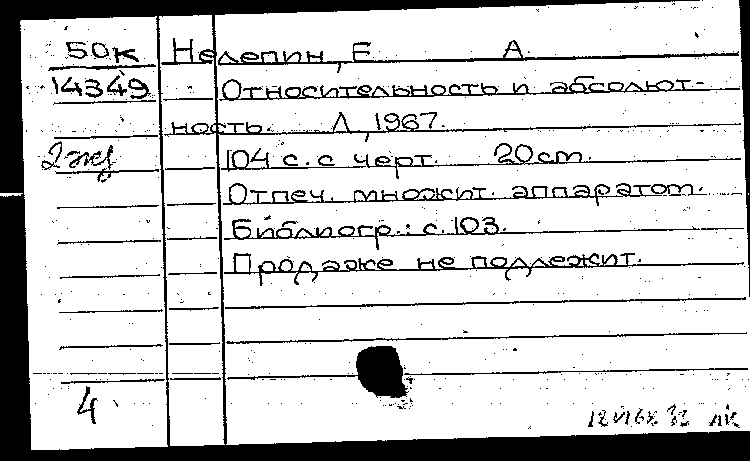 50к Нелепин, Е А.
14349 Относительность и абсолют-
ность. Л, 1967.
2 экз 104 с. с черт. 20cm.
Отпеч. множит. аппаратом.
Библиогр.: с. 103.
Продаже не подлежит.
4